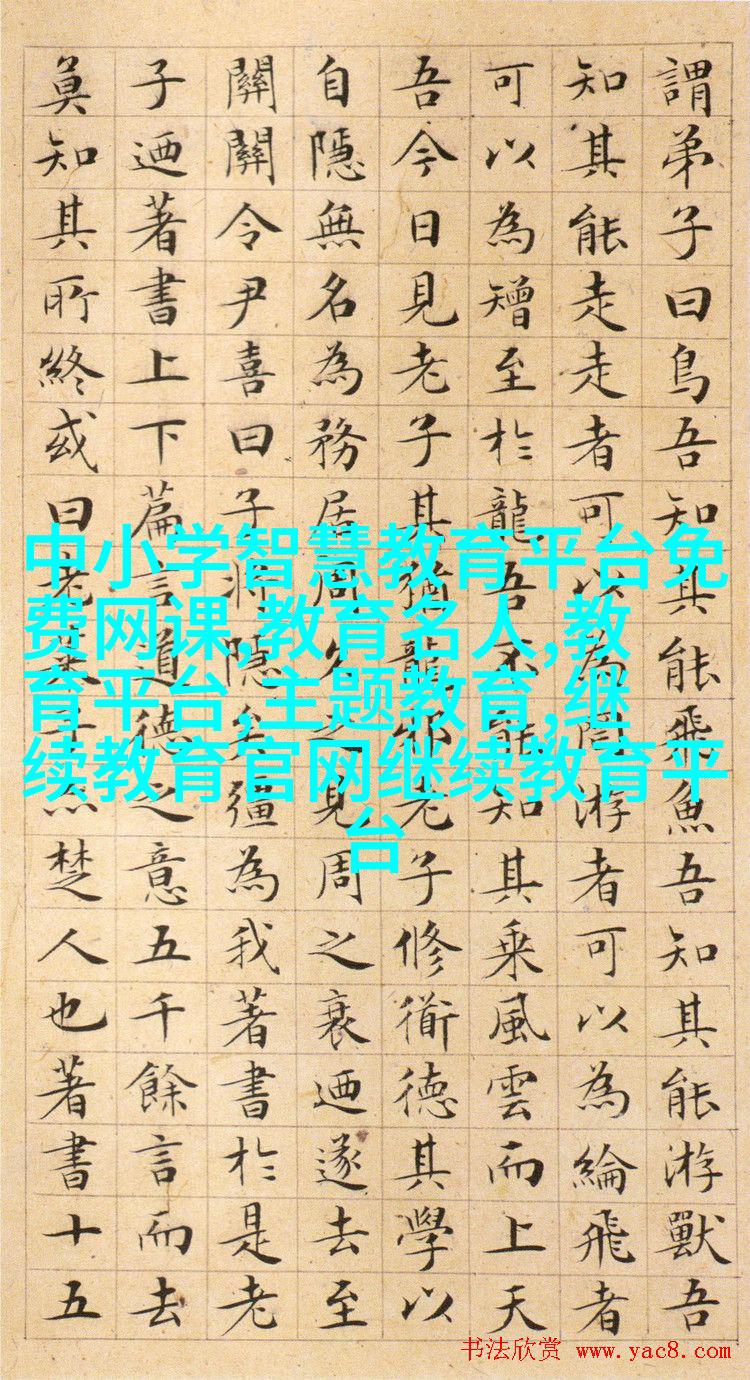 謂弟子曰鳥吾知其能飛魚吾知其能游獸吾
知其能走走者可以為罔游者可以為綸飛者
可以為矰至於龍吾不能知其乘風雲而上天
吾今日見老子其猶龍邪老子修衟德其學以
自隱無名為務居周久之見周之衰迺遂去至
關關令尹喜曰子將隱矣彊為我著書於是老
子迺著書上下篇言道德之意五千餘言而去
莫知其所終或曰老萊子亦楚人也著書十五
中小学智慧教育平台免
费网课,教育名人,教
育平台,主题教育,继
续教育官网继续教育平
台
书法欣赏 www.yac8.com